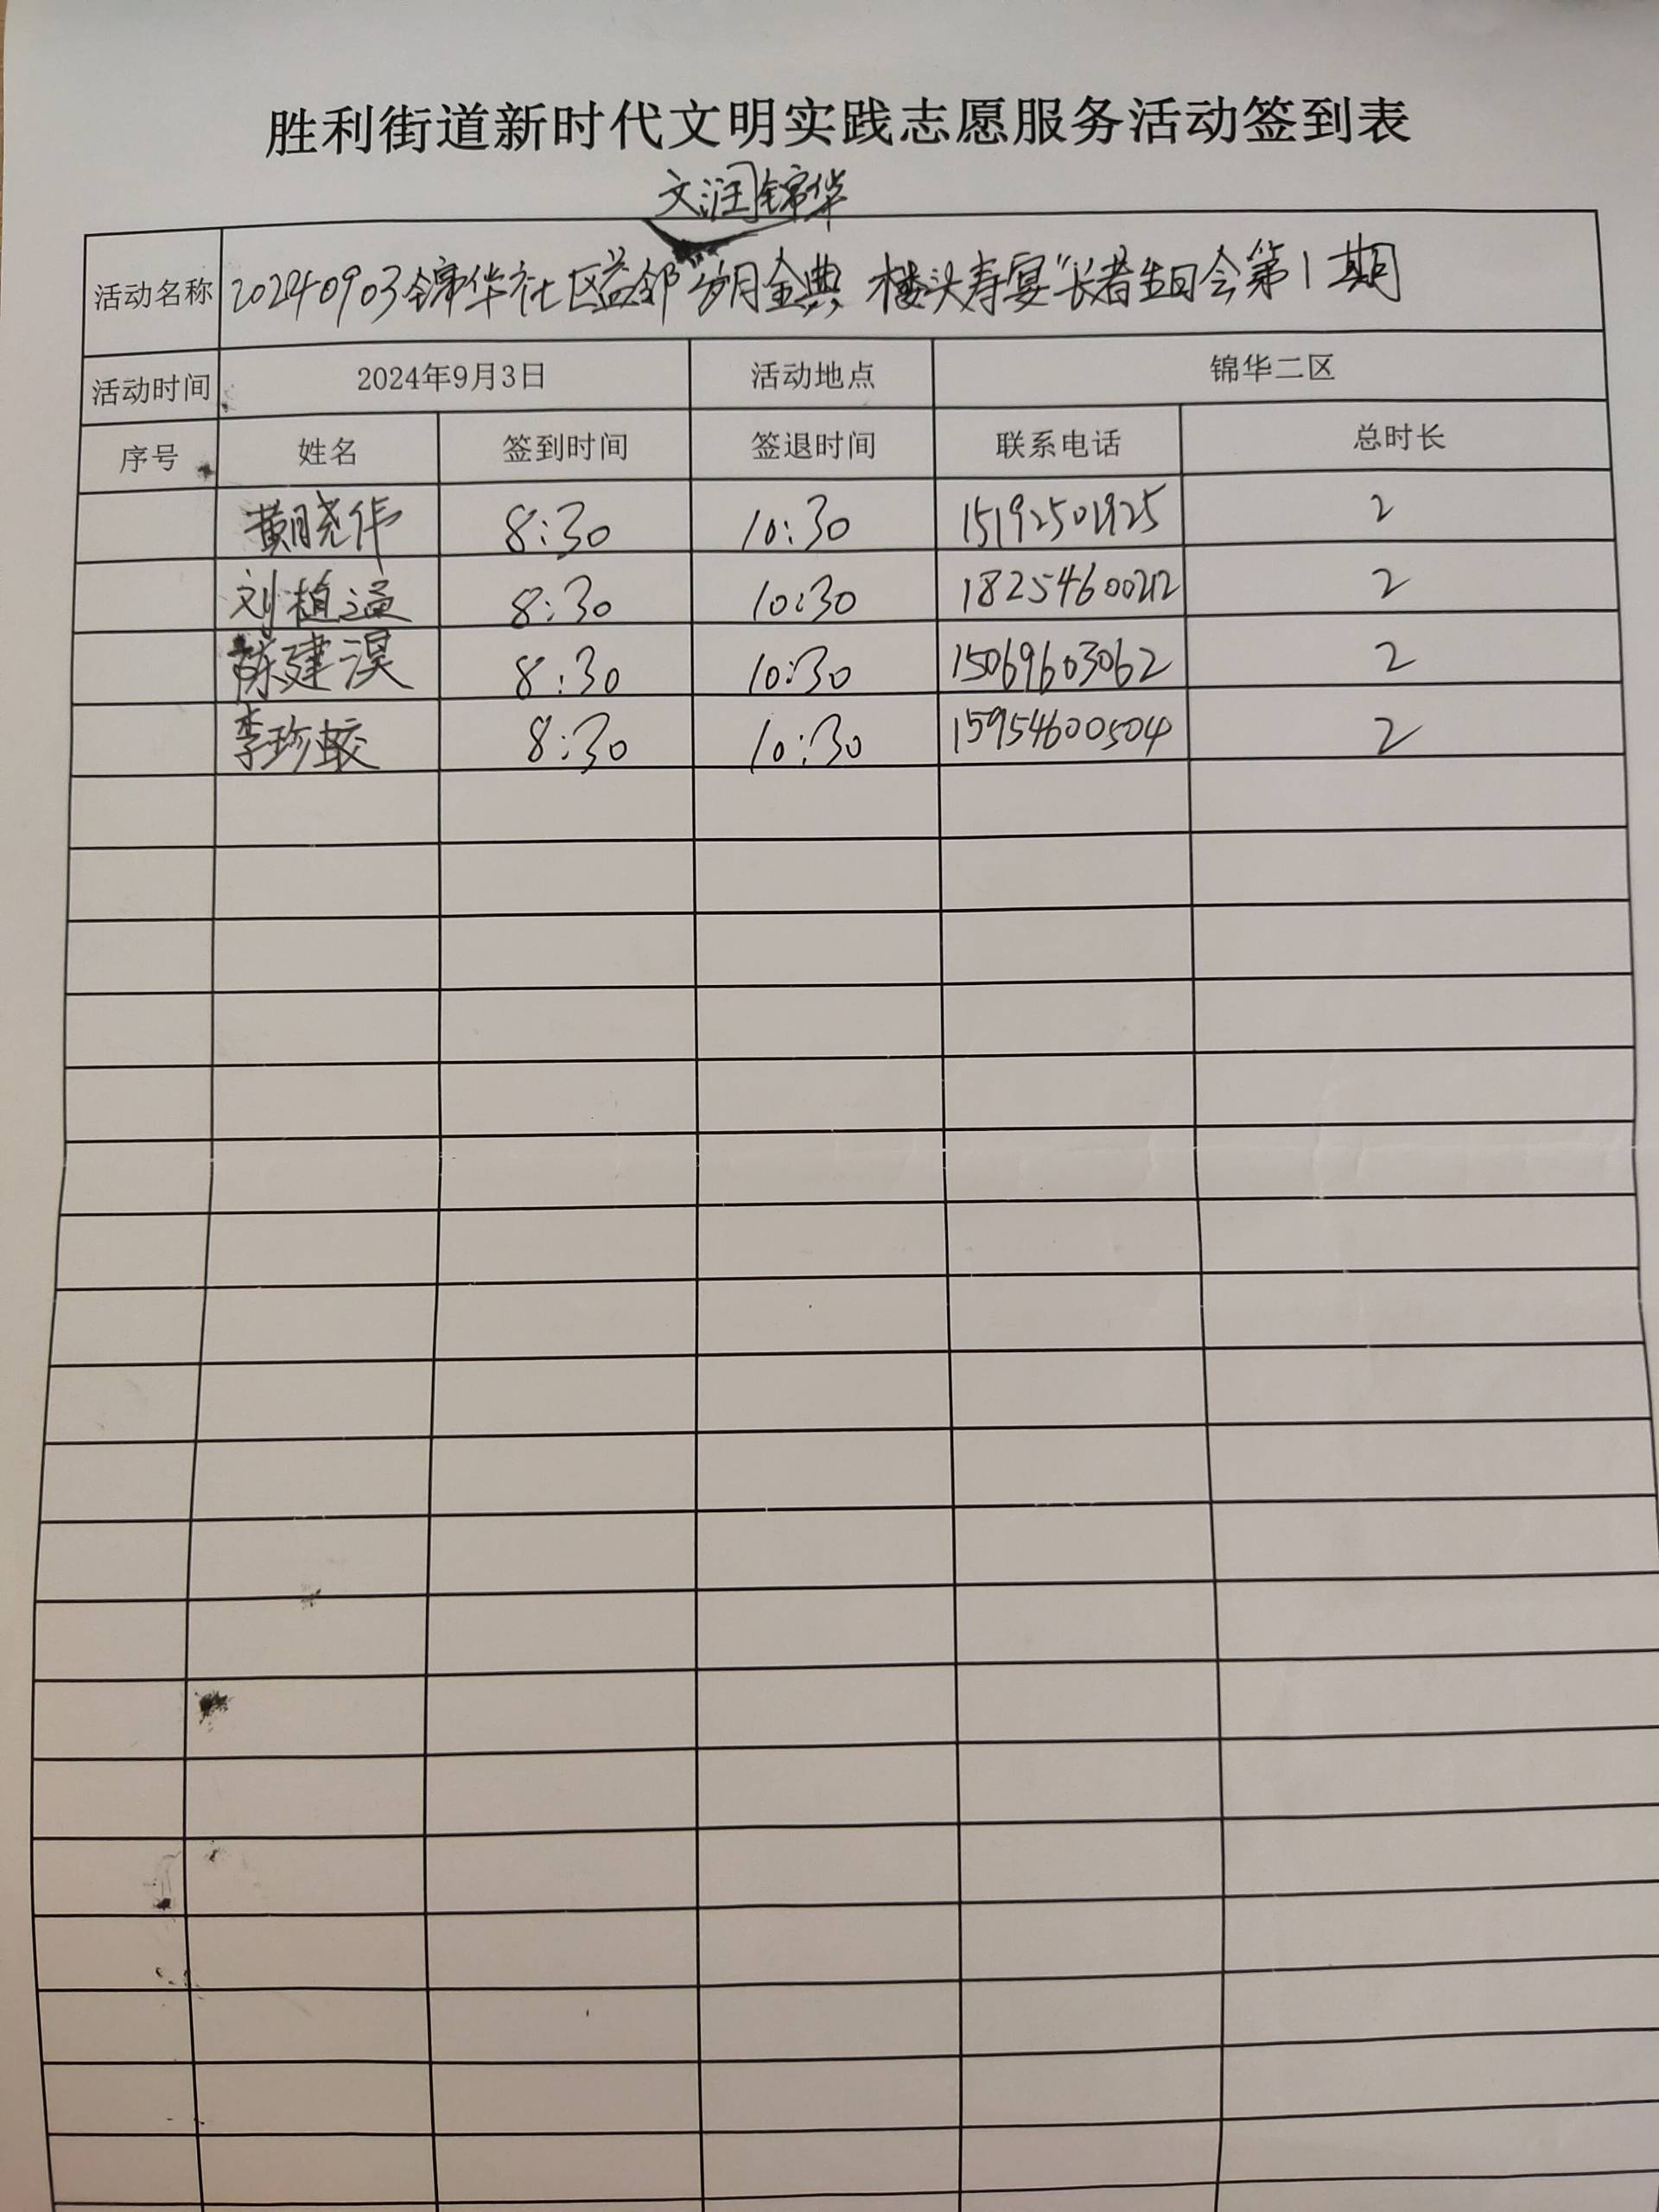 胜利街道新时代文明实践志愿服务活动签到表
文润锦华
活动名称 20240903锦华社区益邻"岁月金典 楼头寿宴"长者生日会第1期
活动时间 2024年9月3日 活动地点 锦华二区
序号 姓名 签到时间 签退时间 联系电话 总时长
黄晓伟 8:30 10:30 15192501925 2
刘植通 8:30 10:30 2
陈建淏 8:30 10:30 15069603062 2
李珍蛟 8:30 10:30 15954600504 2